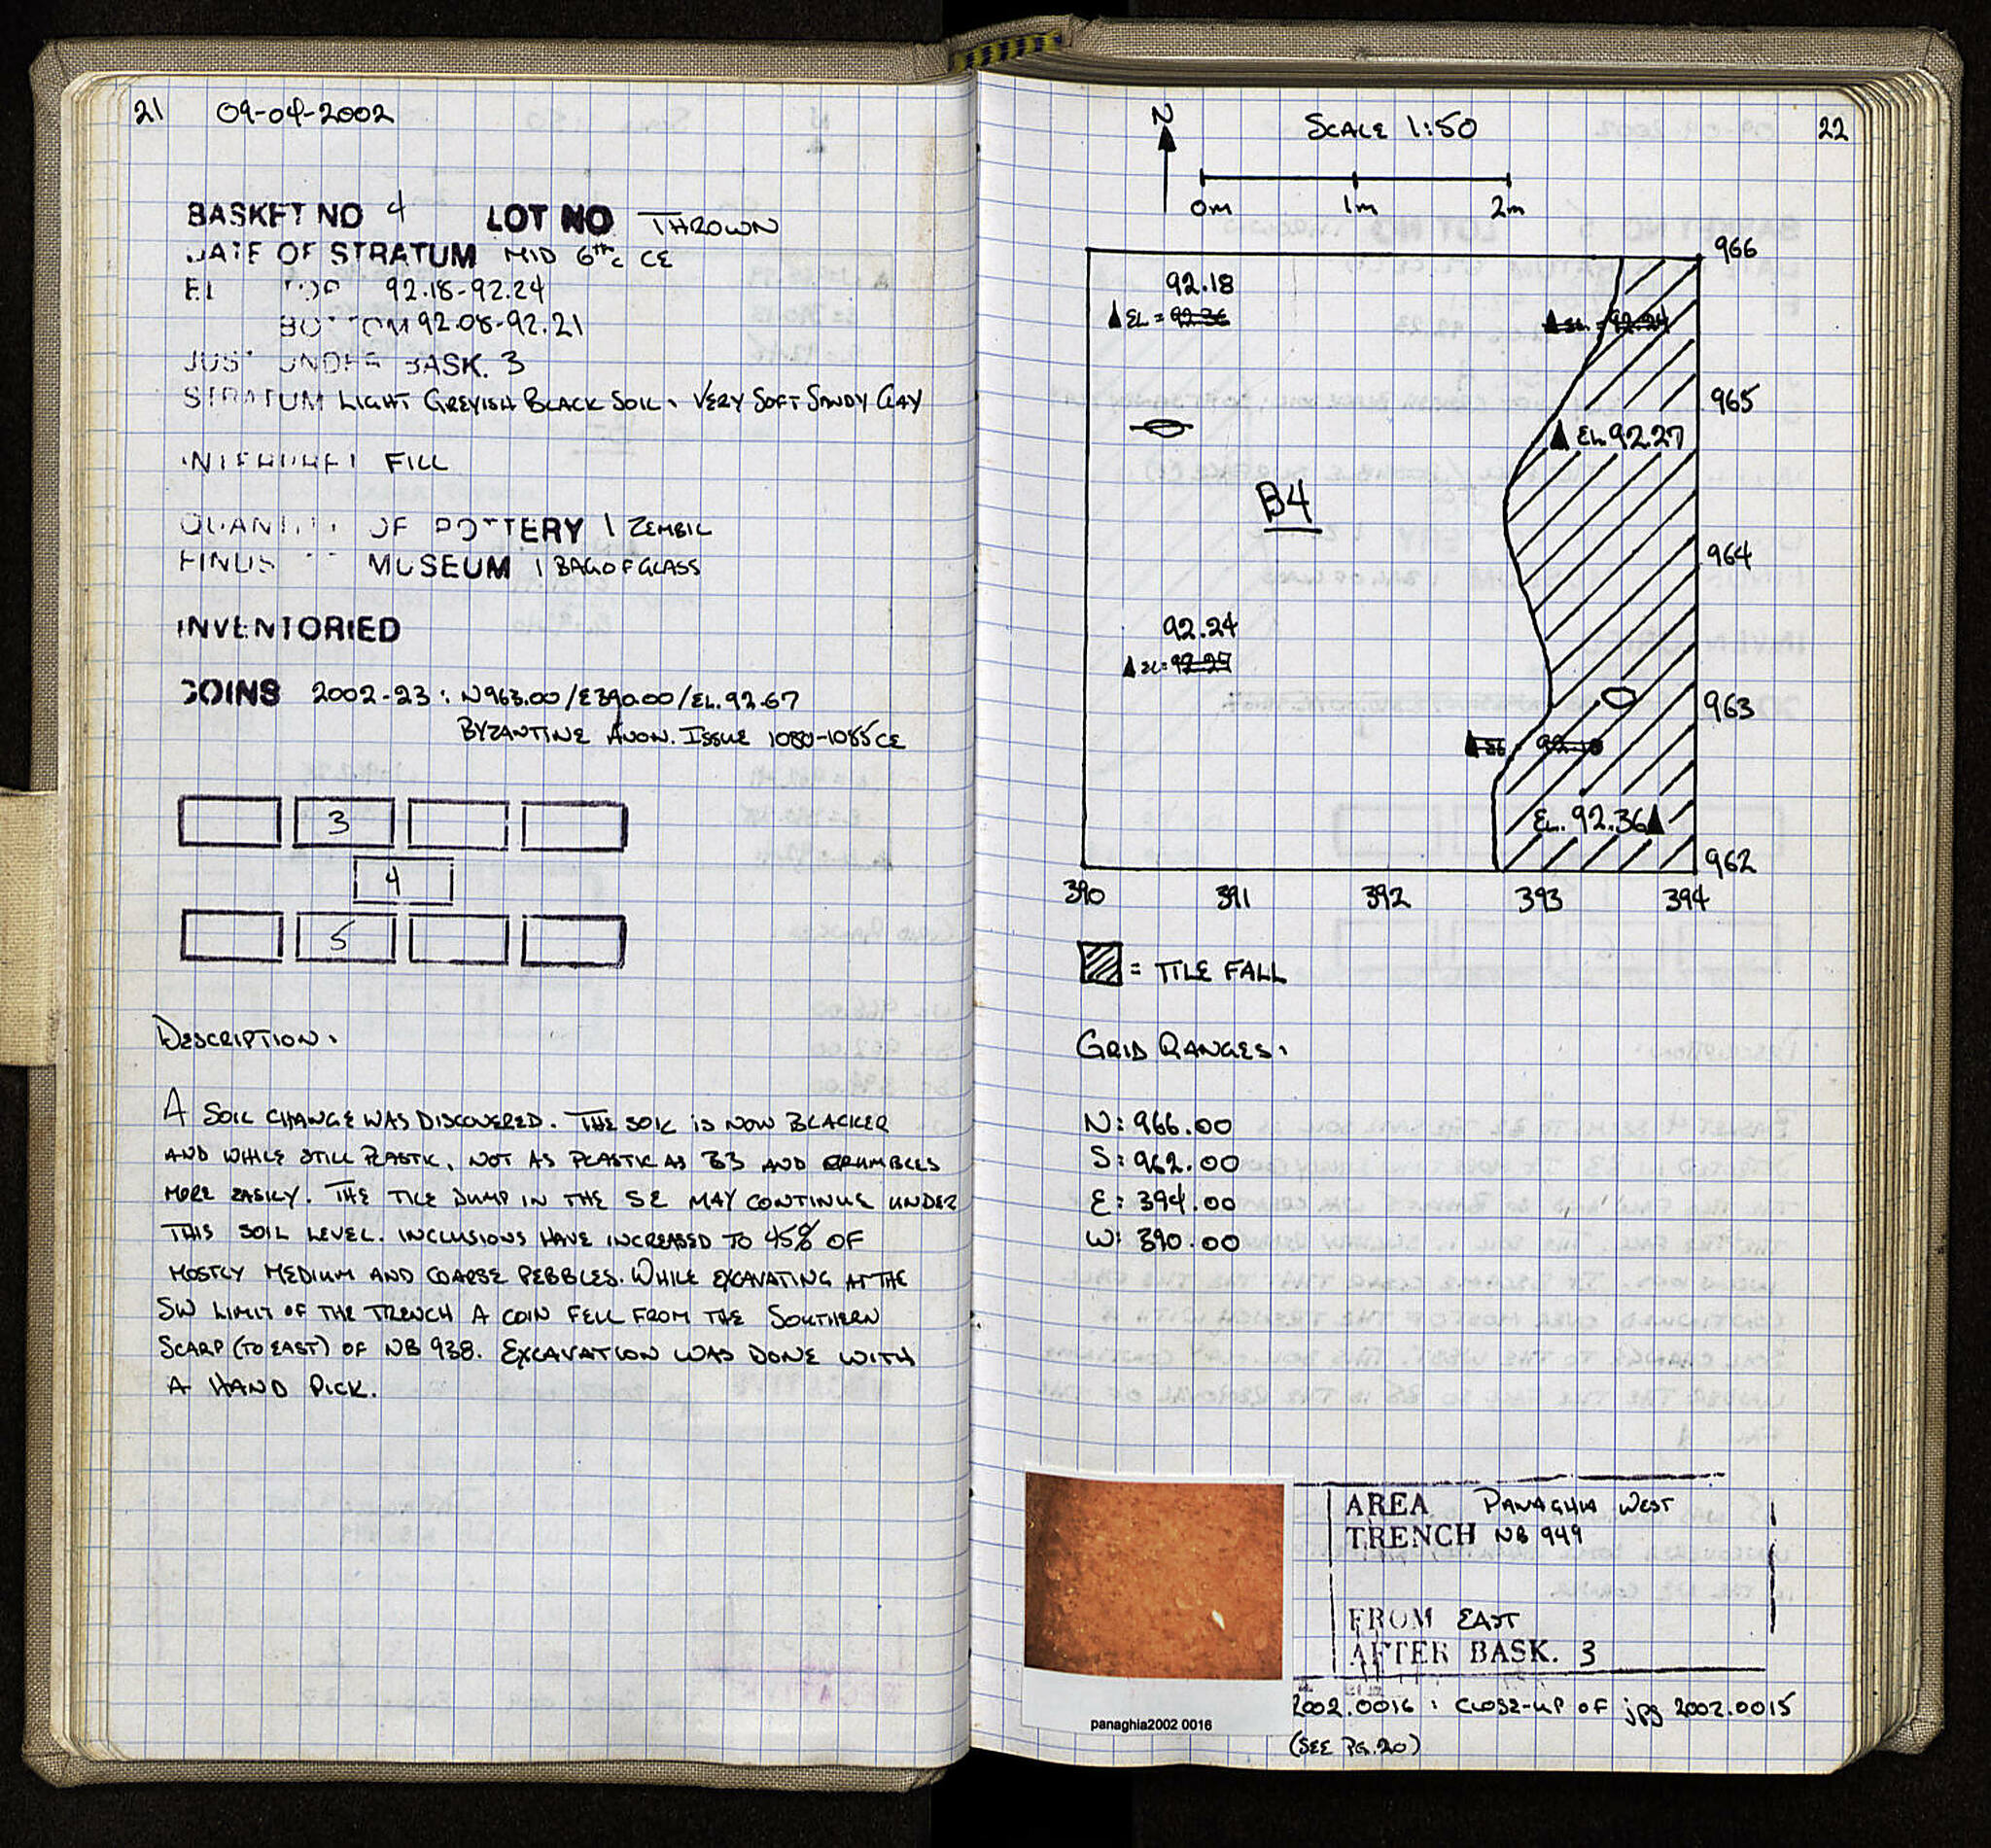 21 09-04-2002
BASKET NO 4 LOT NO THROWN
DATE OF STRATUM MID 6th c CE
EL TOP 92.18-92.24
BOTTOM 92.08-92.21
JUST UNDER BASK. 3
STRATUM LIGHT GREYISH BLACK SOIL. VERY SOFT SANDY CLAY
INTERPRET FILL
QUANTITY OF POTTERY 1 ZEMBIL
FINDS MUSEUM 1 BAG OF GLASS
INVENTORIED
COINS 2002-23: N963.00/E390.00/EL.92.67
BYZANTINE ANON. ISSUE 1080-1085 CE
3
4
5
DESCRIPTION.
A SOIL CHANGE WAS DISCOVERED. THE SOIL IS NOW BLACKER
AND WHILE STILL PLASTIC, NOT AS PLASTIC AS B3 AND CRUMBLES
MORE EASILY. THE TILE DUMP IN THE SE MAY CONTINUE UNDER
THIS SOIL LEVEL. INCLUSIONS HAVE INCREASED TO 45% OF
MOSTLY MEDIUM AND COARSE PEBBLES. WHILE EXCAVATING AT THE
SW LIMIT OF THE TRENCH A COIN FELL FROM THE SOUTHERN
SCARP (TO EAST) OF NB 938. EXCAVATION WAS DONE WITH
A HAND PICK.
22
N
SCALE 1:50
0m 1m 2m
966
92.18
EL = 92.36
EL = 92.24
965
EL. 92.27
B4
964
92.24
EL = 92.27
963
EL. 92.36
962
390 391 392 393 394
= TILE FALL
GRID RANGES.
N: 966.00
S: 962.00
E: 394.00
W: 390.00
AREA PANAGHIA WEST
TRENCH NB 949
FROM EAST
AFTER BASK. 3
panaghia2002 0016
2002.0016 : CLOSE-UP OF jpg 2002.0015
(SEE PG. 20)